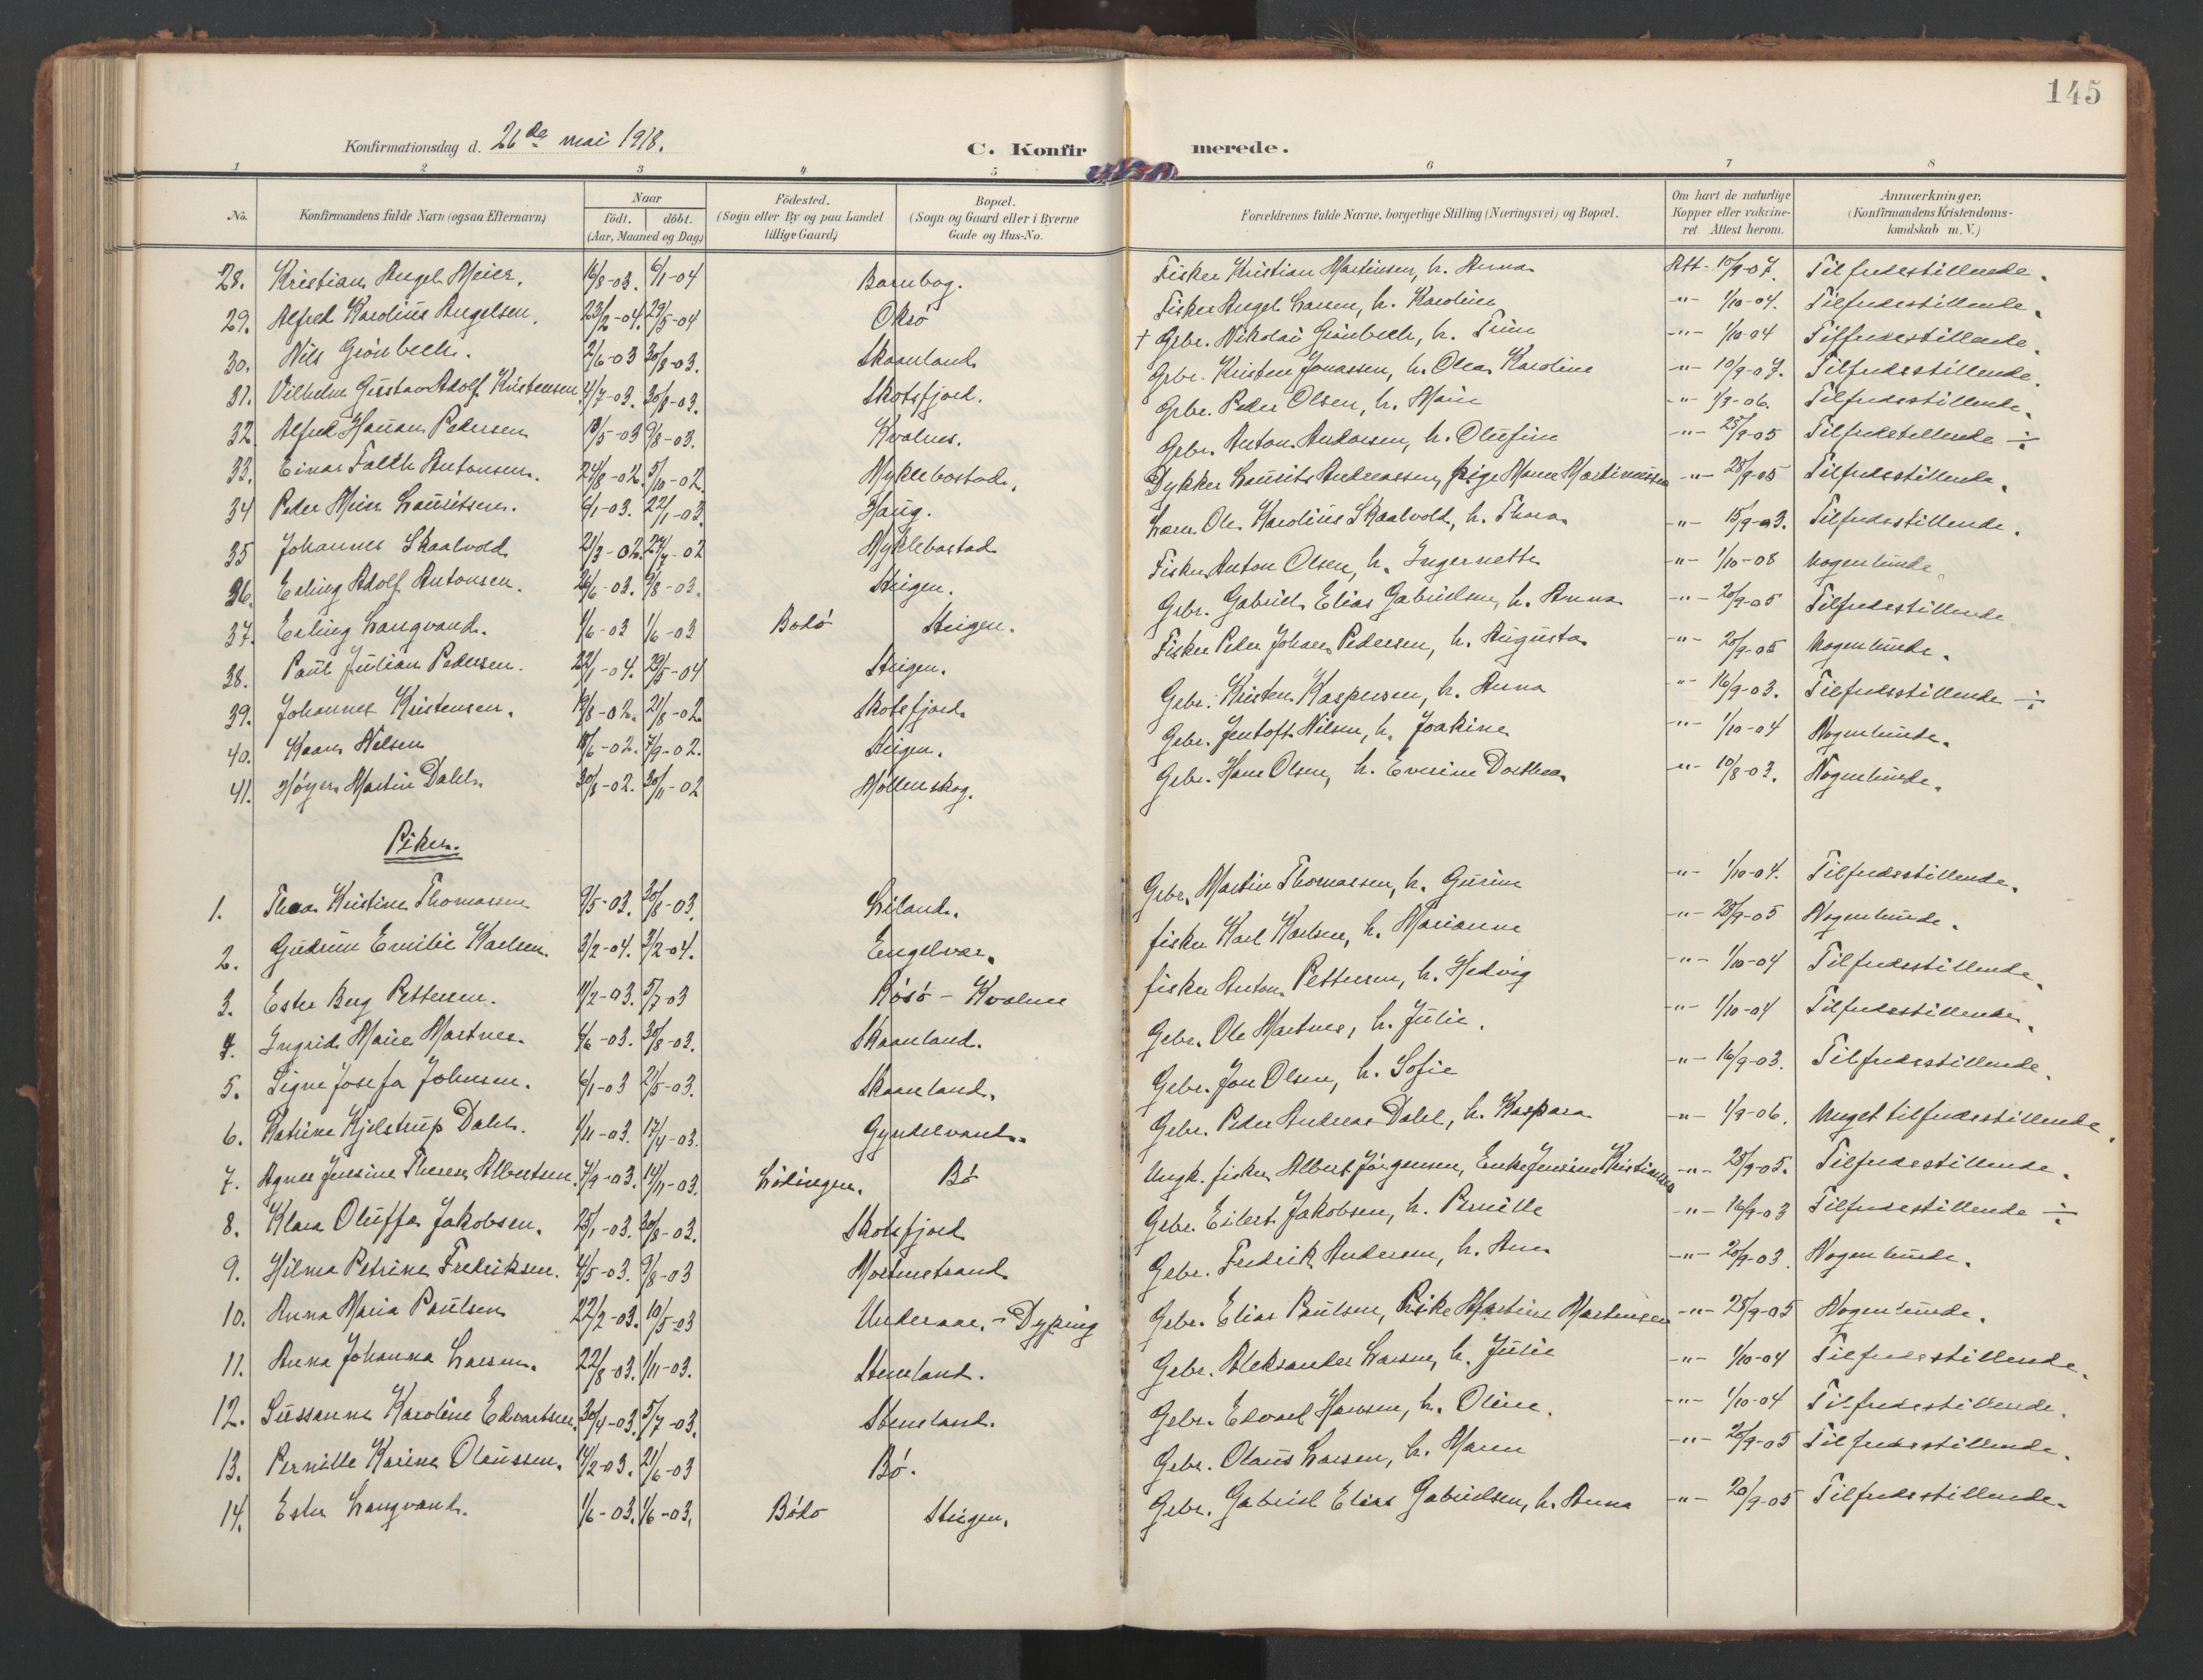 145
Konfirmationsdag d. 26de mai 1918.
C. Konfirmerede.
1 2 3 4 5 6 7 8
No. Konfirmandens fulde Navn (ogsaa Efternavn) Naar födt. döbt. (Aar, Maaned og Dag) Födested. (Sogn eller By og paa Landet tillige Gaard) Bopæl. (Sogn og Gaard eller i Byerne Gade og Hus-No. Forældrenes fulde Navne, borgerlige Stilling (Næringsvei) og Bopæl. Om havt de naturlige Kopper eller vakcineret Attest herom. Anmærkninger. (Konfirmandens Kristendomskundskab m. V.)
28. Kristian Angel Meier. 16/8-03. 6/1-04 Barnbog. Fisker Kristian Martinsen, h. Anna Att- 10/9-07. Tilfredsstillende.
29. Alfred Karolius Angelsen. 23/2-04. 29/5-04 Oksö Fisker Angel Larsen, h. Karoline -"- 1/10-04. Tilfredsstillende.
30. Nils Grönbech. 2/6-03 30/8-03. Skaanland † Gbr. Nikolai Grönbech, h. Trine -"- 1/10-04 Tilfredsstillende.
31. Vilhelm Gustav Adolf Kristensen 4/7-03. 30/8-03. Skotsfjord. Gbr. Kristen Jonassen, h. Olea Karoline -"- 10/9-07. Tilfredsstillende.
32. Alfred Hauan Pedersen 18/5-03 9/8-03. Kvalnes. Gbr. Peder Olsen, h. Marie -"- 1/9-06. Tilfredsstillende.
33. Einar Falch Antonsen. 24/8-02. 5/10-02. Myklebostad. Gbr. Anton Andorsen, h. Olufine -"- 25/9-05 Tilfredstillende ÷
34 Peder Meier Lauritsen. 6/1-03. 22/1-03. Haug. Dykker Laurits Andreassen, pige Maren Martinussen -"- 28/9-05 Tilfredsstillende.
35 Johannes Skaalvold 21/3-02. 24/7-02 Myklebostad Lærer Ole Karolius Skaalvold, h. Thora -"- 15/9-03. Tilfredsstillende.
36. Erling Adolf Antonsen. 26/6-03. 9/8-03. Steigen. Fisker Anton Olsen, h. Ingernette -"- 1/10-08 Nogenlunde
37. Erling Langvand. 1/6-03 1/6-03 Bodö Steigen. Gbr. Gabriel Elias Gabrielsen, h. Anna -"- 20/9-05 Tilfredsstillende
38. Paul Julian Pedersen. 22/1-04. 29/5-04 Steigen. Fisker Peder Johan Pedersen, h. Augusta -"- 20/9-05 Nogenlunde.
39. Johannes Kristensen. 19/8-02. 21/8-02. Skotsfjord. Gbr. Kristen Kaspersen, h. Anna -"- 16/9-03. Tilfredsstillende ÷
40. Kaare Nilsen 18/6-02. 7/9-02. Steigen. Gbr. Jentoft Nilsen, h. Joakine -"- 1/10-04 Nogenlunde.
41. Höyer Martin Dahl. 30/8-02. 30/11-02 Möllenskog. Gbr. Hans Olsen, h. Everine Dorthea -"- 10/8-03. Nogenlunde.
Piker.
1. Thea Kristine Thomassen 9/5-03. 30/8-03. Leland. Gbr. Martin Thomassen, h. Gurine -"- 1/10-04. Tilfredsstillende.
2. Gudrun Emilie Karlsen. 3/2-04. 3/2-04. Engelvær. fisker Karl Karlsen, h. Marianne -"- 28/9-05 Nogenlunde.
3. Ester Berg Pettersen. 11/2-03. 5/7-03 Rösö - Kvalnes fisker Anton Pettersen, h. Hedvig -"- 1/10-04 Tilfredsstillende.
4. Ingrid Marie Martnes. 4/6-03. 30/8-03. Skaanland. Gbr. Ole Martnes, h. Julie. -"- 1/10-04 Tilfredsstillende.
5. Signe Josefa Johnsen. 6/1-03 21/5-03. Skaanland. Gbr. Jon Olsen, h. Sofie -"- 16/9-03. Tilfredsstillende.
6. Katrine Kjelstrup Dahl. 1/11-03. 17/4-03. Gyndelvand. Gbr. Peder Andreas Dahl, h. Kaspara -"- 1/9-06. Meget tilfredsstillende.
7. Agnes Jensine Therese Albertsen. 7/9-03. 14/11-03. Lödingen. Bö Ungk. fisker Albert Jörgensen, Enke Jensine Kristiansen -"- 28/9-05. Tilfredsstillende.
8. Klara Oluffa Jakobsen. 25/1-03. 30/8-03. Skotsfjord Gbr. Eilert Jakobsen, h. Pernille -"- 16/9-03 Tilfredsstillende ÷
9. Hilma Petrine Fredriksen. 4/5-03. 9/8-03 Mortnestrand Gbr. Fredrik Andersen, h. Ane -"- 20/9-03. Nogenlunde.
10. Anna Maria Paulsen 22/2-03. 10/5-03 Underaas - Dyping Gbr. Elias Paulsen, Pike Martine Martinsen -"- 25/9-05 Nogenlunde.
11. Anna Johanna Larsen. 22/8-03. 1/11-03. Steneland. Gbr. Aleksander Larsen, h. Julie -"- 1/10-04 Tilfredsstillende.
12. Sussanna Karoline Edvartsen. 30/4-03. 5/7-03. Steneland. Gbr. Edvart Hansen, h. Oline. -"- 1/10-04 Tilfredsstillende.
13. Pernille Karine Olaussen. 14/2-03. 21/6-03 Bö. Gbr. Olaus Larsen, h. Maren -"- 26/9-05 Tilfredsstillende.
14. Ester Langvand. 1/6-03. 1/6-03. Bödö Steigen. Gbr. Gabriel Elias Gabrielsen, h. Anna -"- 20/9-05 Tilfredsstillende.